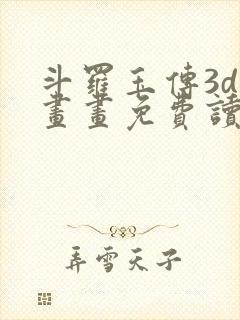 斗羅玉傳3d
畫畫免費讀
弄雪天子